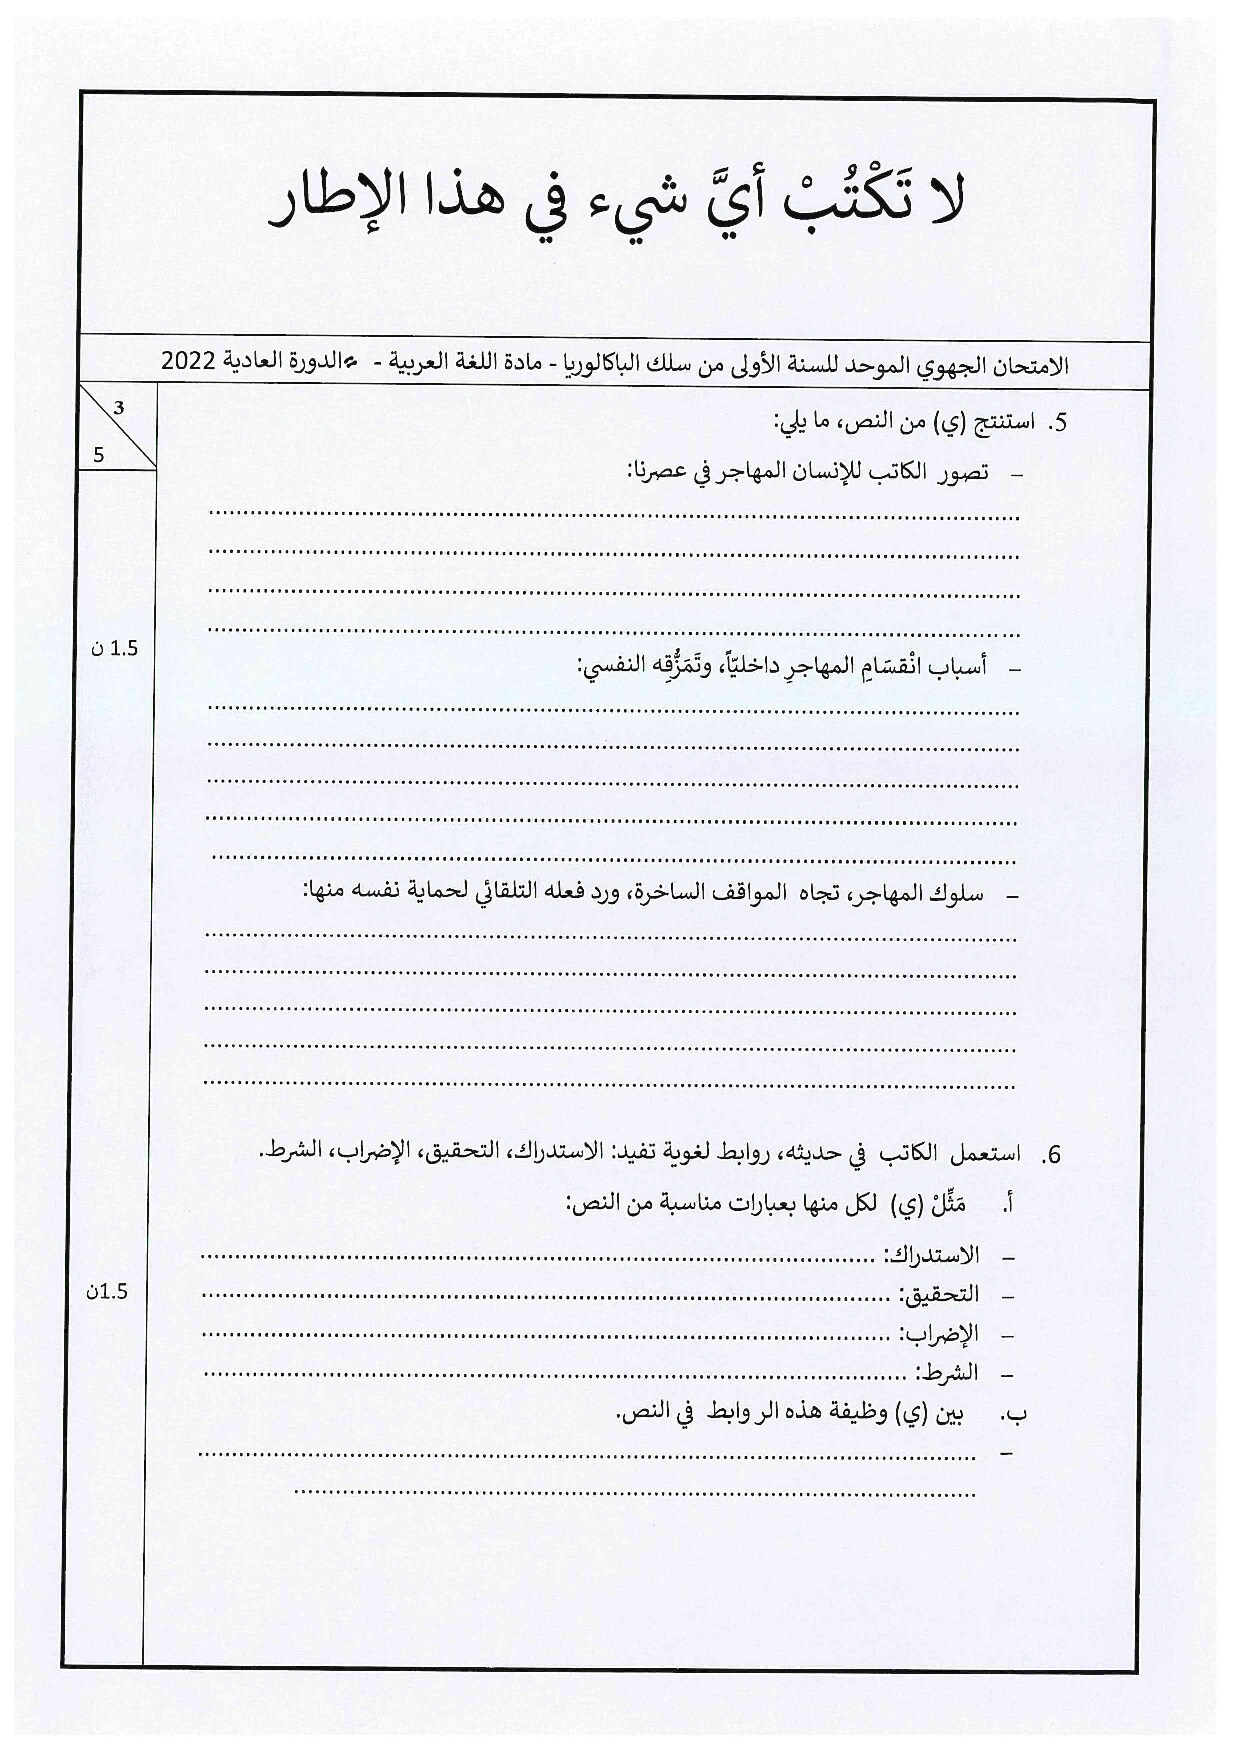 لا تَكْتُبْ أيَّ شيء في هذا الإطار
الامتحان الجهوي الموحد للسنة الأولى من سلك الباكالوريا - مادة اللغة العربية - الدورة العادية 2022
3
5
5. استنتج (ي) من النص، ما يلي:
– تصور الكاتب للإنسان المهاجر في عصرنا:
1.5 ن
– أسباب انْقسَامِ المهاجرِ داخليّاً، وتَمَزُّقِه النفسي:
– سلوك المهاجر، تجاه المواقف الساخرة، ورد فعله التلقائي لحماية نفسه منها:
6. استعمل الكاتب في حديثه، روابط لغوية تفيد: الاستدراك، التحقيق، الإضراب، الشرط.
أ. مَثِّلْ (ي) لكل منها بعبارات مناسبة من النص:
– الاستدراك: ........................................
1.5ن
– التحقيق: ........................................
– الإضراب: ........................................
– الشرط: ........................................
ب. بين (ي) وظيفة هذه الر وابط في النص.
–